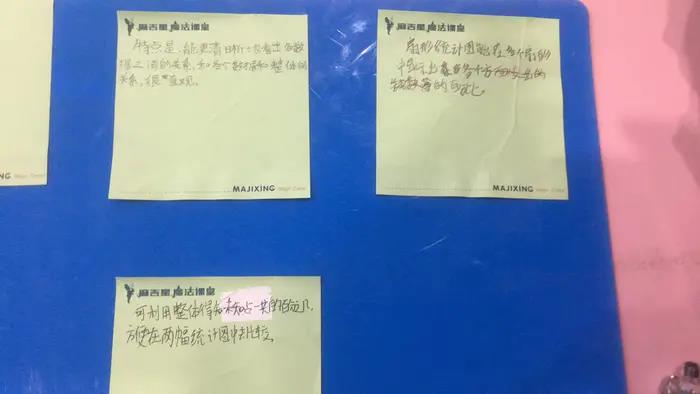 麻吉星 魔法课堂
特点是,能更清晰一步看出各数
据之间的关系,和各个数据和整体的
关系,很直观。
MAJIXING Magic Class
麻吉星 魔法课堂
扇形统计图能在各个扇形
中表示出各个方面占总的
的百分比。
MAJIXING Magic Class
麻吉星 魔法课堂
可利用整体得知未知占一共的百分几,
方便在两幅统计图中比较。